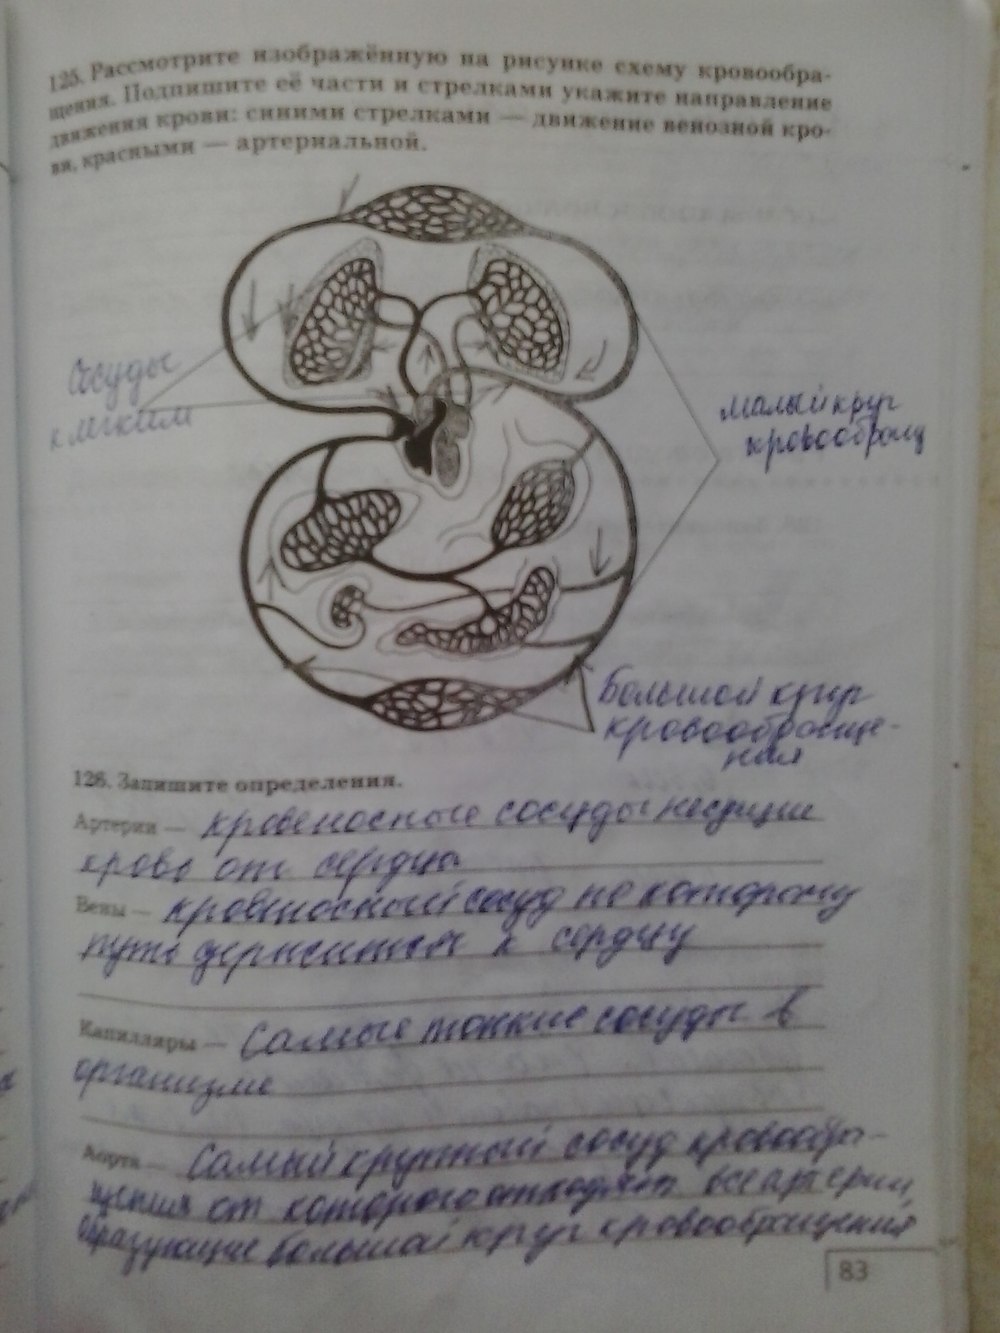 125. Рассмотрите изображённую на рисунке схему кровообра-
щения. Подпишите её части и стрелками укажите направление
движения крови: синими стрелками — движение венозной кро-
ви, красными — артериальной.
Сосуды
к легким
малый круг
кровообращ
Большой круг
кровообраще-
ния
126. Запишите определения.
Артерии — кровеносные сосуды несущие
кровь от сердца
Вены — кровеносный сосуд по которому
путь держится к сердцу
Капилляры — Самые тонкие сосуды в
организме
Аорта — Самый крупный сосуд кровообра-
щения от которого отходят все артерии,
образующие большой круг кровообращения
83